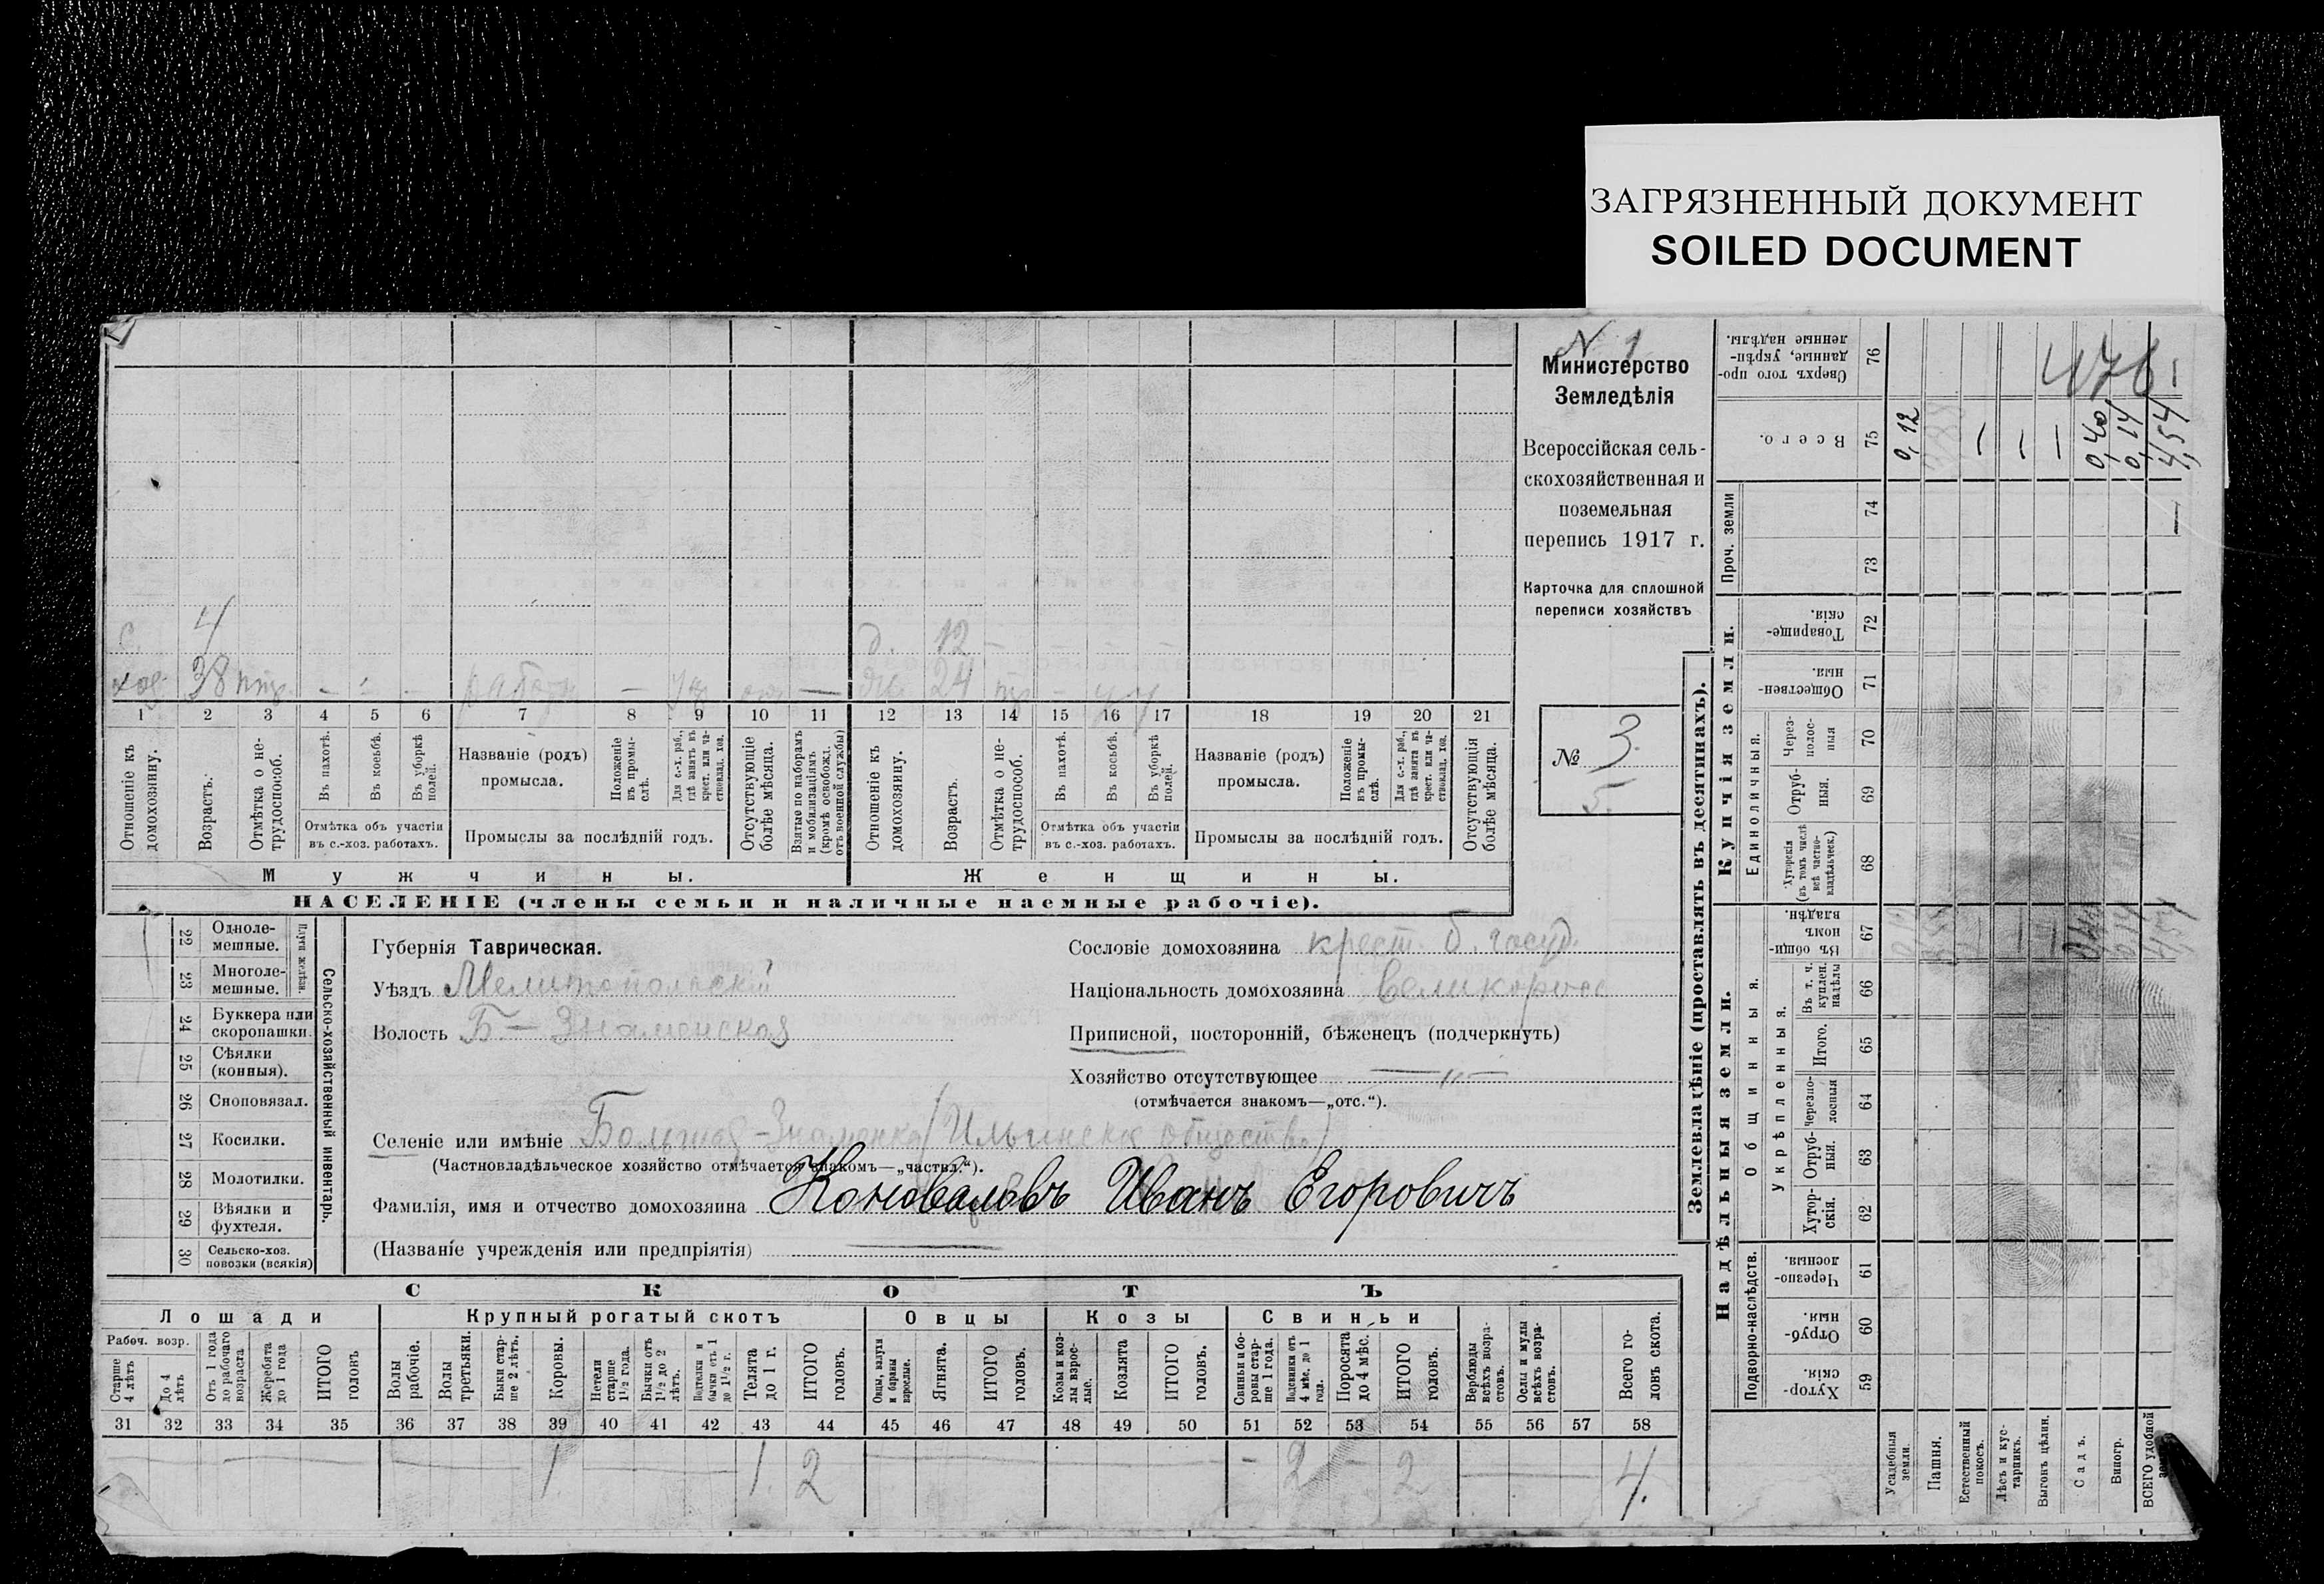 ЗАГРЯЗНЕННЫЙ ДОКУМЕНТ
SOILED DOCUMENT
N 1
Министерство
Земледѣлія
Всероссійская сель-
скохозяйственная и
поземельная
перепись 1917 г.
Карточка для сплошной
переписи хозяйствъ
№ 3.
5.
с. 4 д. 12
хоз. 38 — — — — — 24 —
1 2 3 4 5 6 7 8 9 10 11 12 13 14 15 16 17 18 19 20 21
Отношеніе къ домохозяину.
Возрастъ.
Отмѣтка о не-трудоспособ.
Въ пахотѣ.
Въ косьбѣ.
Въ уборкѣ полей.
Отмѣтка объ участіи
въ с.-хоз. работахъ.
Названіе (родъ)
промысла.
Положеніе въ промы-слѣ.
Для с.-х. раб., гдѣ занятъ въ крест. или ча-стновлад. хоз.
Промыслы за послѣдній годъ.
Отсутствующіе болѣе мѣсяца.
Взятые по наборамъ и мобилизаціямъ (кромѣ освобожд. отъ военной службы)
Отношеніе къ домохозяину.
Возрастъ.
Отмѣтка о не-трудоспособ.
Въ пахотѣ.
Въ косьбѣ.
Въ уборкѣ полей.
Отмѣтка объ участіи
въ с.-хоз. работахъ.
Названіе (родъ)
промысла.
Положеніе въ промы-слѣ.
Для с.-х. раб., гдѣ занятъ въ крест. или ча-стновлад. хоз.
Промыслы за послѣдній годъ.
Отсутствующія болѣе мѣсяца.
Мужчины. Женщины.
НАСЕЛЕНІЕ (члены семьи и наличные наемные рабочіе).
22 Одноле-мешные.
23 Многоле-мешные.
Плуги желѣзн.
24 Буккера или скоропашки.
25 Сѣялки (конныя).
26 Сноповязал.
27 Косилки.
28 Молотилки.
29 Вѣялки и фухтеля.
30 Сельско-хоз. повозки (всякія)
Сельско-хозяйственный инвентарь.
Губернія Таврическая.
Уѣздъ Мелитопольскій
Волость Б-Знаменская
Сословіе домохозяина крест. б. госуд.
Національность домохозяина великоросс
Приписной, посторонній, бѣженецъ (подчеркнуть)
Хозяйство отсутствующее — " —
(отмѣчается знакомъ—„отс.“).
Селеніе или имѣніе Большая-Знаменка (Ильинское общество)
(Частновладѣльческое хозяйство отмѣчается знакомъ—„частвл.“).
Фамилія, имя и отчество домохозяина Коноваловъ Иванъ Егоровичъ
(Названіе учрежденія или предпріятія) —
СКОТЪ
Лошади Крупный рогатый скотъ Овцы Козы Свиньи
Рабоч. возр.
Старше 4 лѣтъ
До 4 лѣтъ
Отъ 1 года до рабочаго возраста
Жеребята до 1 года
ИТОГО головъ
Волы рабочіе.
Волы третьяки.
Быки стар-ше 2 лѣтъ.
Коровы.
Нетели старше 1½ года.
Бычки отъ 1½ до 2 лѣтъ.
Подтелки и бычки отъ 1 до 1½ г.
Телята до 1 г.
ИТОГО головъ.
Овцы, валухи и бараны взрослые.
Ягнята.
ИТОГО головъ.
Козы и коз-лы взрос-лые.
Козлята
ИТОГО головъ.
Свиньи и бо-ровы стар-ше 1 года.
Подсвинки отъ 4 мѣс. до 1 года.
Поросята до 4 мѣс.
ИТОГО головъ.
Верблюды всѣхъ возра-стовъ.
Ослы и мулы всѣхъ возра-стовъ.
Всего го-ловъ скота.
31 32 33 34 35 36 37 38 39 40 41 42 43 44 45 46 47 48 49 50 51 52 53 54 55 56 57 58
— — 1 — 1. 2 — — 2 — 2 — 4.
Землевладѣніе (проставлять въ десятинахъ).
Надѣльныя земли. Купчія земли. Проч. земли
Подворно-наслѣдств.
Общинныя.
Укрѣпленныя.
Единоличныя.
Сверхъ того про-данные, укрѣп-ленные надѣлы. 76
Всего. 75
74
73
Товарище-скія. 72
Обществен-ныя. 71
Через-полос-ныя 70
Отруб-ныя. 69
Хуторскія (въ томъ числѣ всѣ частно-владѣльческ.) 68
Въ общин-номъ владѣн. 67
Въ т. ч. куплен. надѣлы 66
Итого. 65
Черезпо-лосныя 64
Отруб-ныя. 63
Хутор-скія. 62
Черезпо-лосныя. 61
Отруб-ныя. 60
Хутор-скія. 59
476
0,12
— — —
0,40
0,14
4,54
Усадебныя земли.
Пашня.
Естественный покосъ.
Лѣсъ и кус-тарникъ.
Выгонъ цѣлин.
Садъ.
Виногр.
ВСЕГО удобной